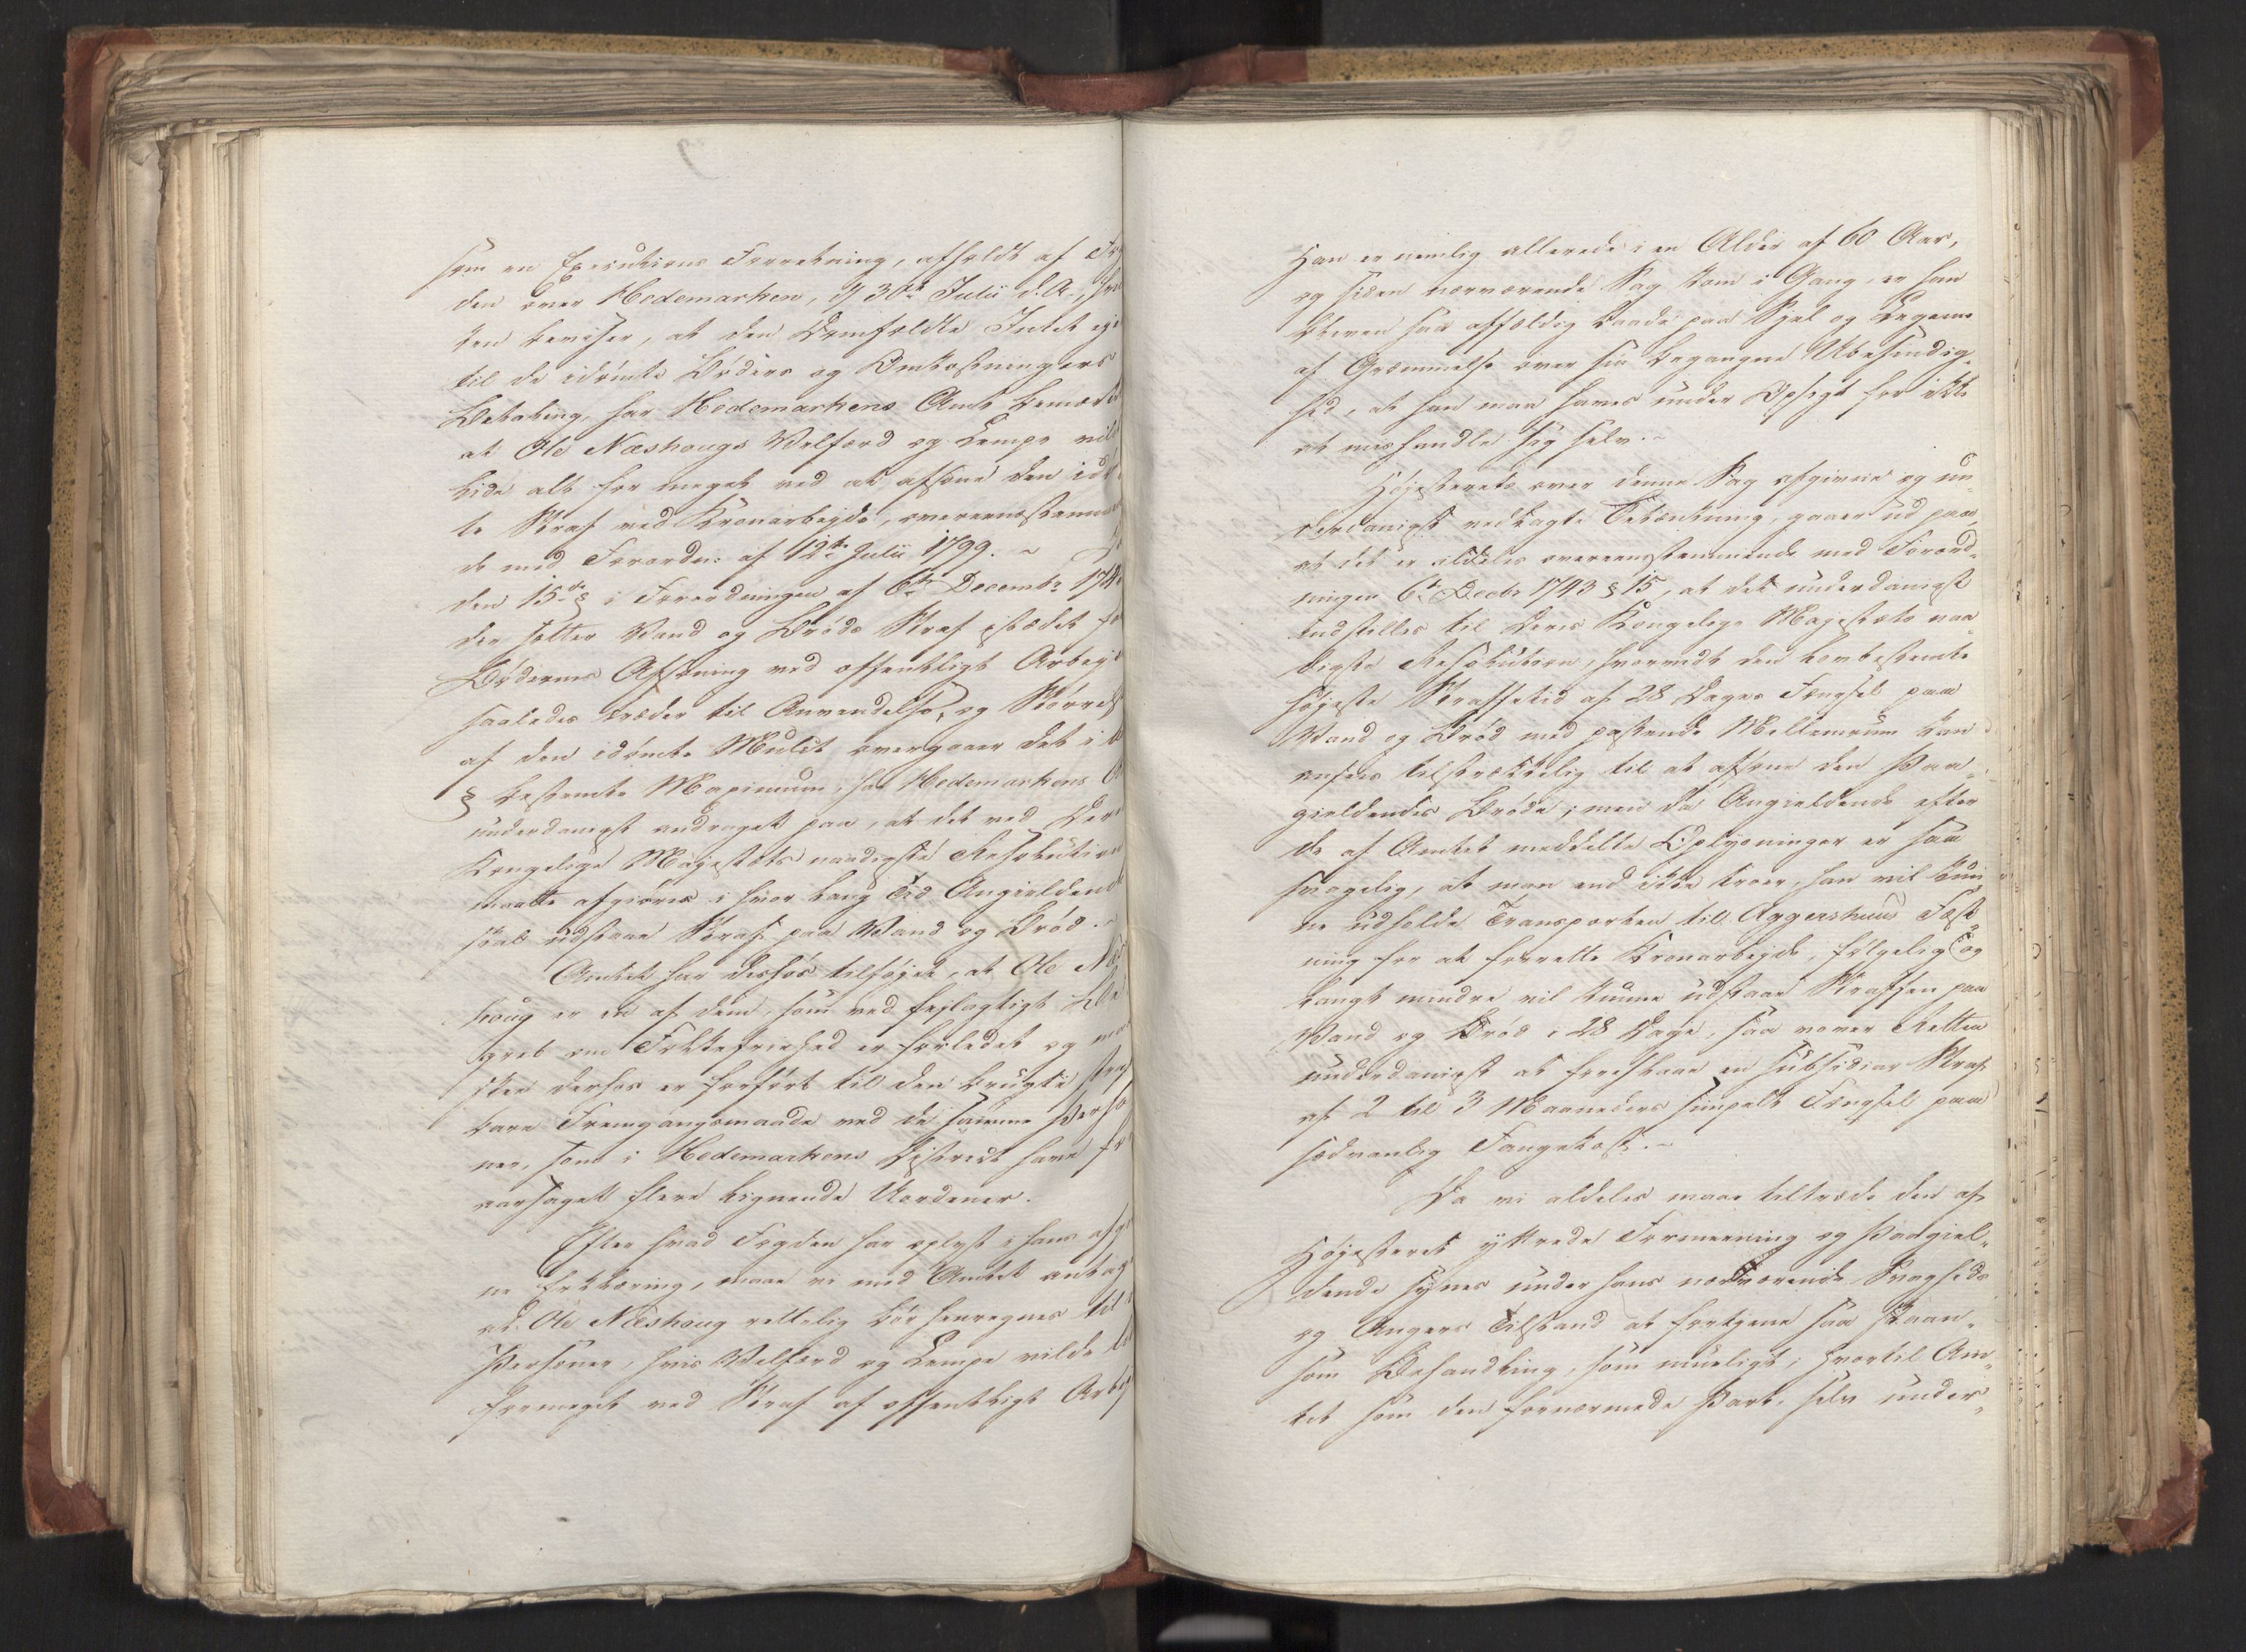 som en Executions Forretning, afholdt af Fog
den over Hedemarken, d/ 30te Julii d. A., hvil
ken beviser, at den Domfældte Intet eje
til de idømte Bøders og Omkostningers
Betaling, har Hedemarkens Amt bemærket
at Ole Næshougs Velfærd og Lempe vil
lide alt for meget ved at afsone den idøm
te Straf ved Kronarbejde, overeensstemmen
de med Forordn: af 12te Julii 1799. ~
den 15de § i Forordningen af 6te Decembr 174
der sætter Vand og Brøds Straf istædet for
Bødernes Afsoning ved offentligt Arbeyde
saaledes træder til Anvendelse, og Størrelse
af den idømte Mulct overgaaer det i
§ bestemte Maximum, har Hedemarkens
underdanigst andraget paa, at det ved Dere
Kongelige Majestæts naadigste Resolution
maatte afgiøres i hvor lang Tid Angieldende
skal udstaae Straf paa Vand og Brød. ~
Amtet har derhos tilføjet, at Ole Næs
houg er en af dem, som ved fejlagtigt Be
greb om Folkefriehed er forledet og
derhos er forført til den brugte
bare Fremgangsmaade ved de samme Perso
ner, som i Hedemarkens District have for
aarsaget flere lignende Uordener.
Efter hvad Fogden har oplyst i hans afgiv
ne Erklæring, maae vi med Amtet antage
at Ole Næshoug rettelig bør henregnes til
Personer, hvis Velfærd og Lempe vilde
formeget ved Straf af offentligt Arbej
Han er nemlig allerede i en Alder af 60 Aar,
og siden nærværende Sag kom i Gang, er han
bleven saa affældig baade paa Sjel og Legeme
af Græmmelse over sin begangne Ubesindig„
hed, at han maa haves under Opsigt for ikke
at mishandle sig selv. ~
Højesterets over denne Sag afgivne og un„
derdanigst vedlagte Betænkning, gaaer ud paa,
at det er aldeles overeensstemmende med Forord„
ningen 6te Decbr 1743 § 15, at det underdanigst
indstilles til Deres Kongelige Majestæts naa„
digste Resolution, hvorvidt den lovbestemte
højeste Straffetid af 28 Dages Fængsel paa
Vand og Brød med passende Mellemrum kan
ansees tilstrækkelig til at afsone den Paa„
gieldendes Brøde; men da Angieldende efter
de af Amtet meddelte Oplysninger er saa
svagelig, at man end ikke troer, han vil kun„
ne udholde Transporten till Aggershuus Fæst„
ning for at forrette Kronarbejde, følgelig og
langt mindre vil kunne udstaae Straffen paa
Vand og Brød i 28 Dage, saa vover Retten
underdanigst at foreslaae en subsidiar Straf
af 2 til 3 Maaneders simpelt Fængsel paa
sædvanlig Fangekost. ~
Da vi aldeles maae tiltræde den af
Højesteret yttrede Formeening og Paagiel„
dende synes under hans nærværende Svagheds
og Angers Tilstand at fortjene saa skaan„
som Behandling, som mueligt, hvortil Am„
tet som den fornærmede Part, selv under„